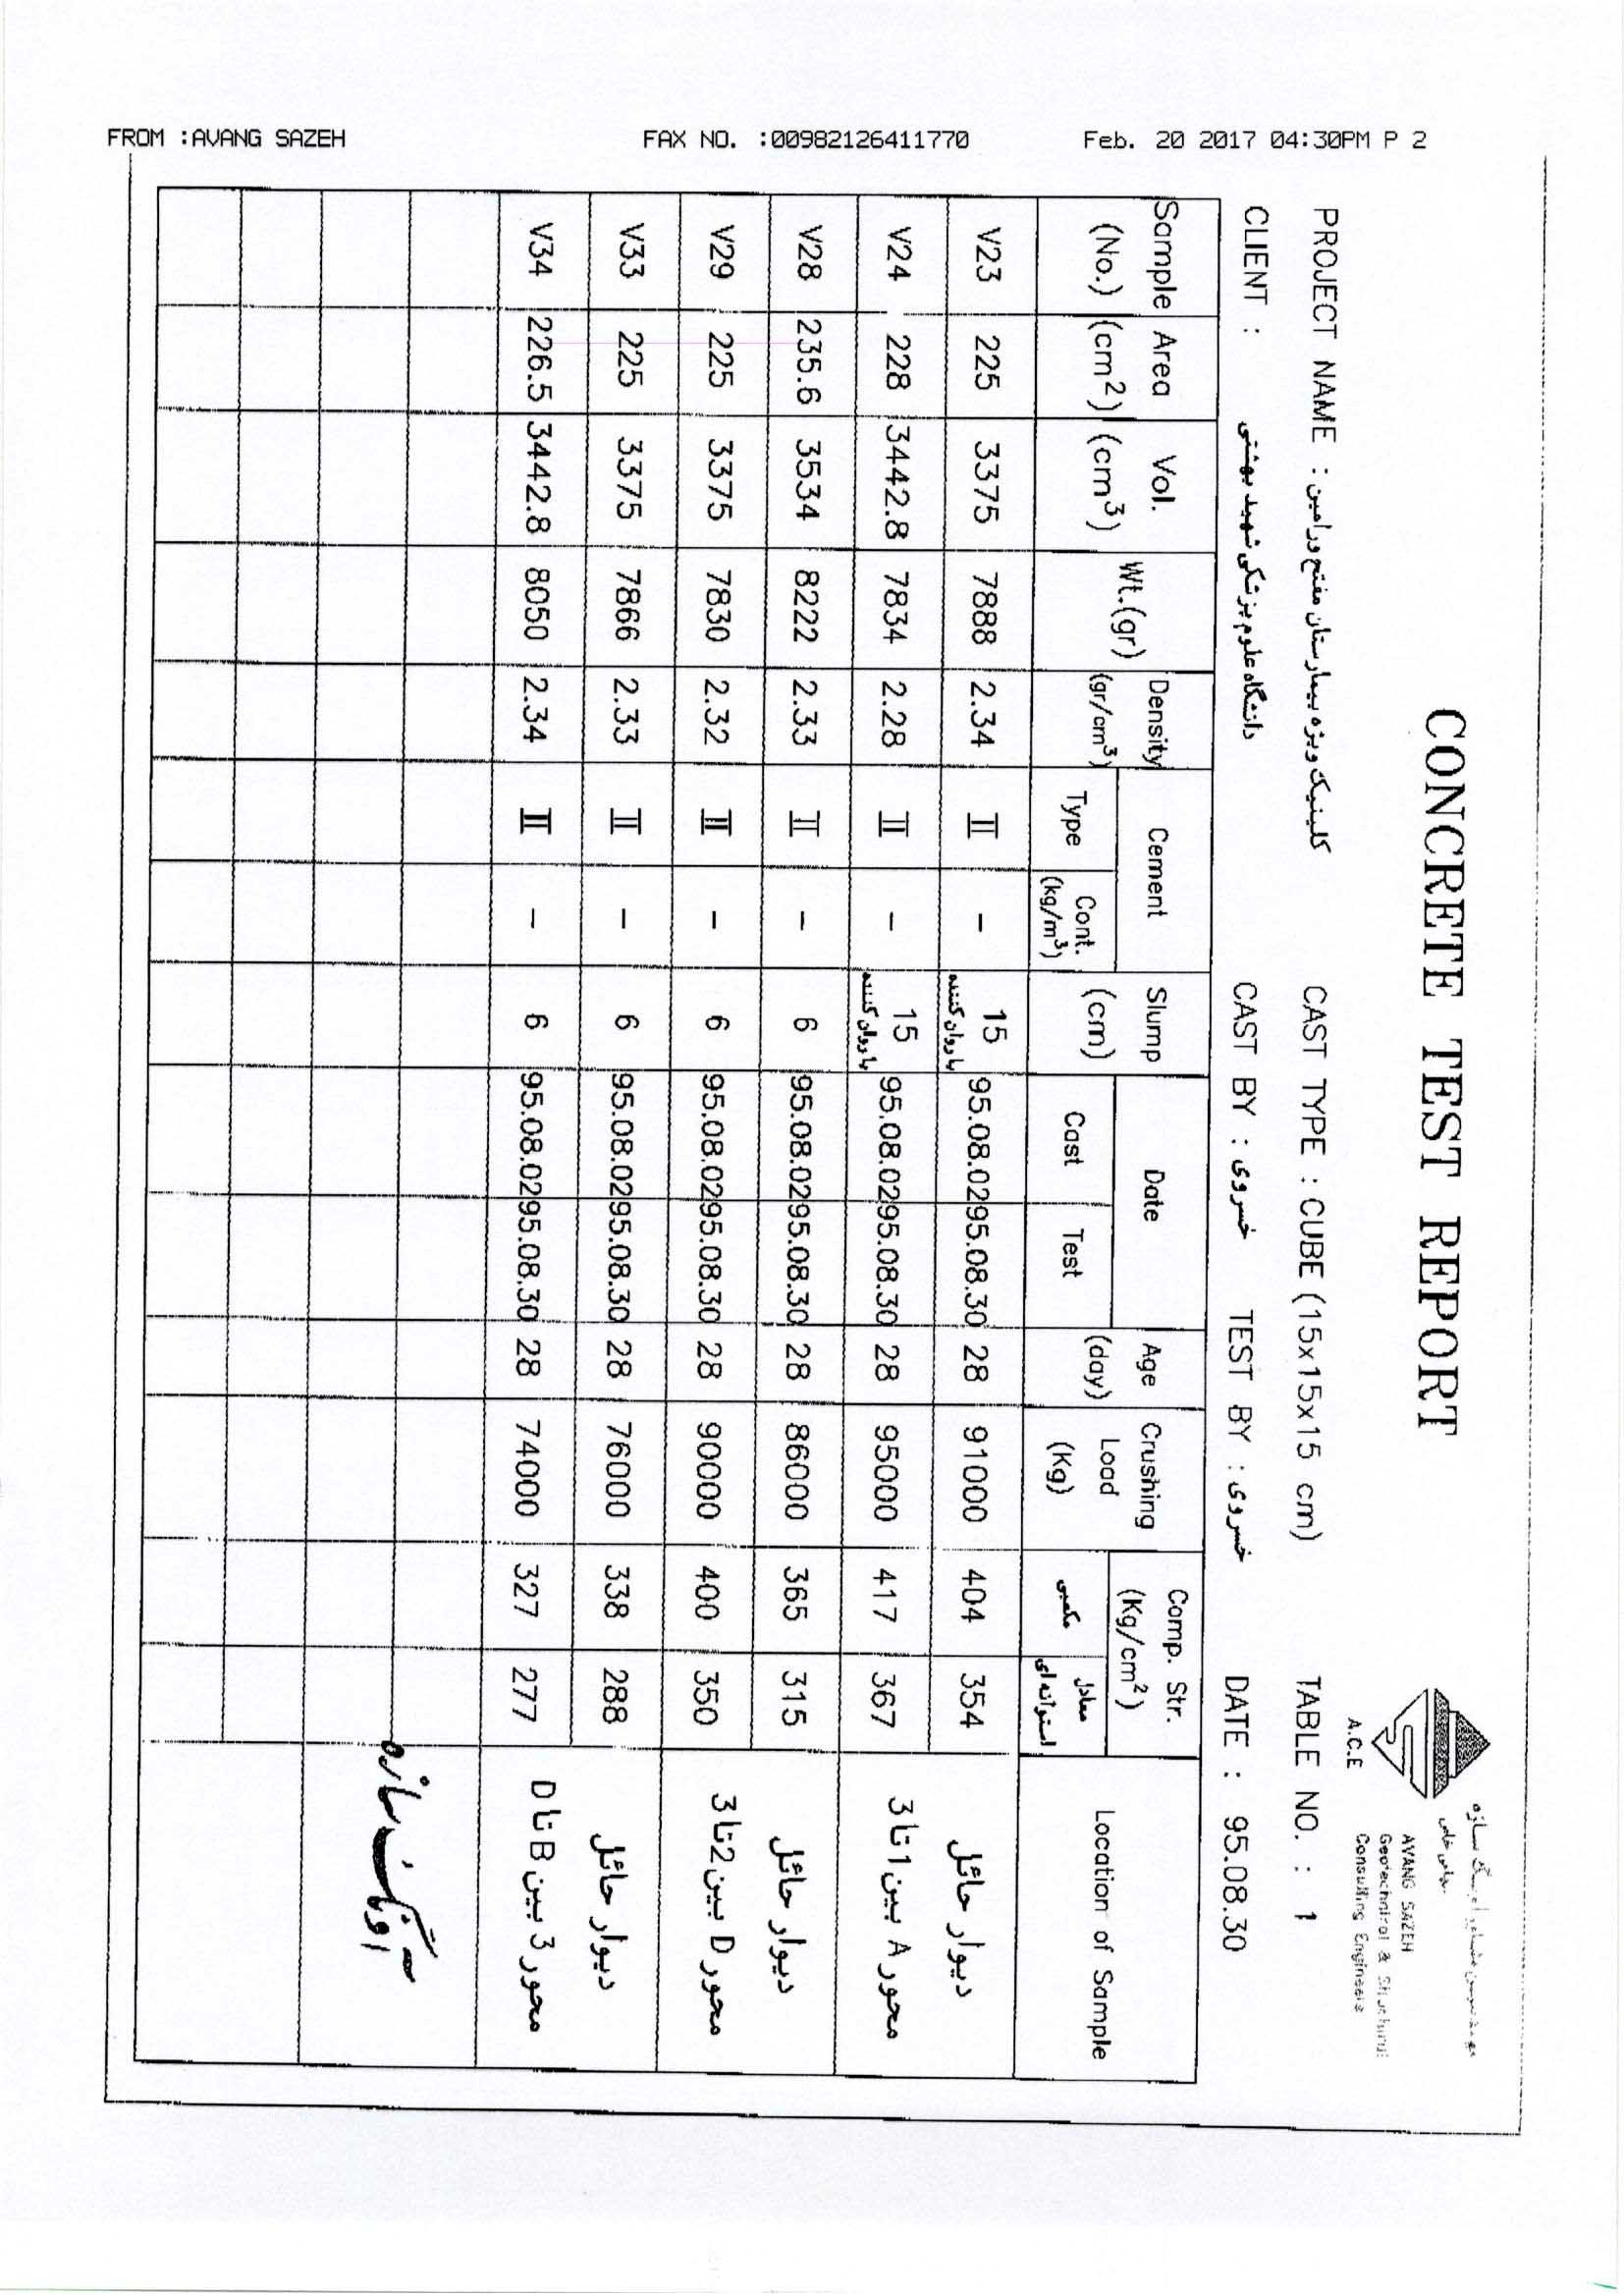 FROM :AVANG SAZEH FAX NO. :00982126411770 Feb. 20 2017 04:30PM P 2
CONCRETE TEST REPORT
A.C.E
AVANG SAZEH
Geotechnical & Structural
Consulting Engineers
PROJECT NAME : کلینیک ویژه بیمارستان مفتح ورامین CAST TYPE : CUBE (15x15x15 cm) TABLE NO. : 1
CLIENT : دانشگاه علوم پزشکی شهید بهشتی CAST BY : خسروی TEST BY : خسروی DATE : 95.08.30
Sample (No.) Area (cm²) Vol. (cm³) Wt.(gr) Density (gr/cm³) Cement Type Cont. (kg/m³) Slump (cm) Date Cast Test Age (day) Crushing Load (Kg) Comp. Str. (Kg/cm²) مکعبی معادل استوانه ای Location of Sample
V23 225 3375 7888 2.34 II - 15 با روان کننده 95.08.02 95.08.30 28 91000 404 354 دیوار حائل
V24 228 3442.8 7834 2.28 II - 15 با روان کننده 95.08.02 95.08.30 28 95000 417 367 محور A بین 1 تا 3
V28 235.6 3534 8222 2.33 II - 6 95.08.02 95.08.30 28 86000 365 315 دیوار حائل
V29 225 3375 7830 2.32 II - 6 95.08.02 95.08.30 28 90000 400 350 محور D بین 2 تا 3
V33 225 3375 7866 2.33 II - 6 95.08.02 95.08.30 28 76000 338 288 دیوار حائل
V34 226.5 3442.8 8050 2.34 II - 6 95.08.02 95.08.30 28 74000 327 277 محور 3 بین B تا D
آونگ سازه